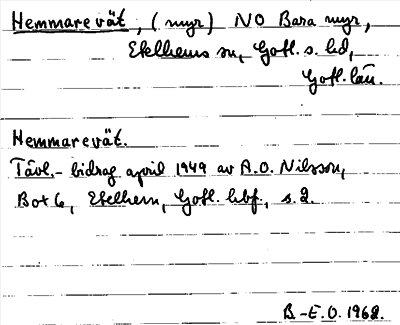 Hemmarevät, (myr) NO Bara myr,
Etelhems sn, Gotl. s. hd,
Gotl. län.
Hemmarevät.
Tävl.- bidrag april 1949 av A.O. Nilsson,
Box 6, Etelhem, Gotl. hbf., s. 2.
B.-E.O. 1968.